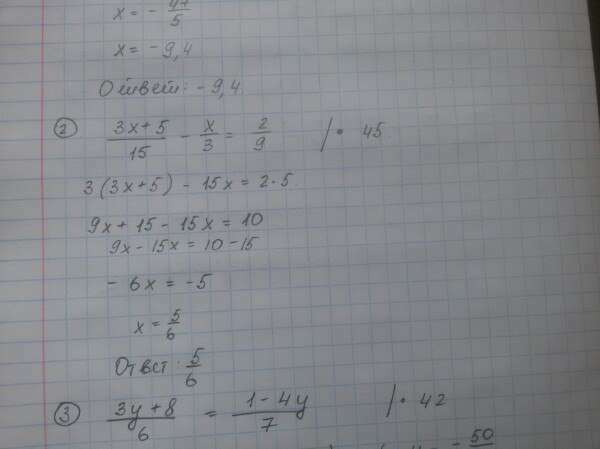 x = - 47/5
x = - 9,4
Ответ: - 9,4
② (3x+5)/15 - x/3 = 2/9 | · 45
3(3x+5) - 15x = 2·5
9x + 15 - 15x = 10
9x - 15x = 10 - 15
- 6x = -5
x = 5/6
Ответ: 5/6
③ (3y+8)/6 = (1-4y)/7 | · 42
- 50